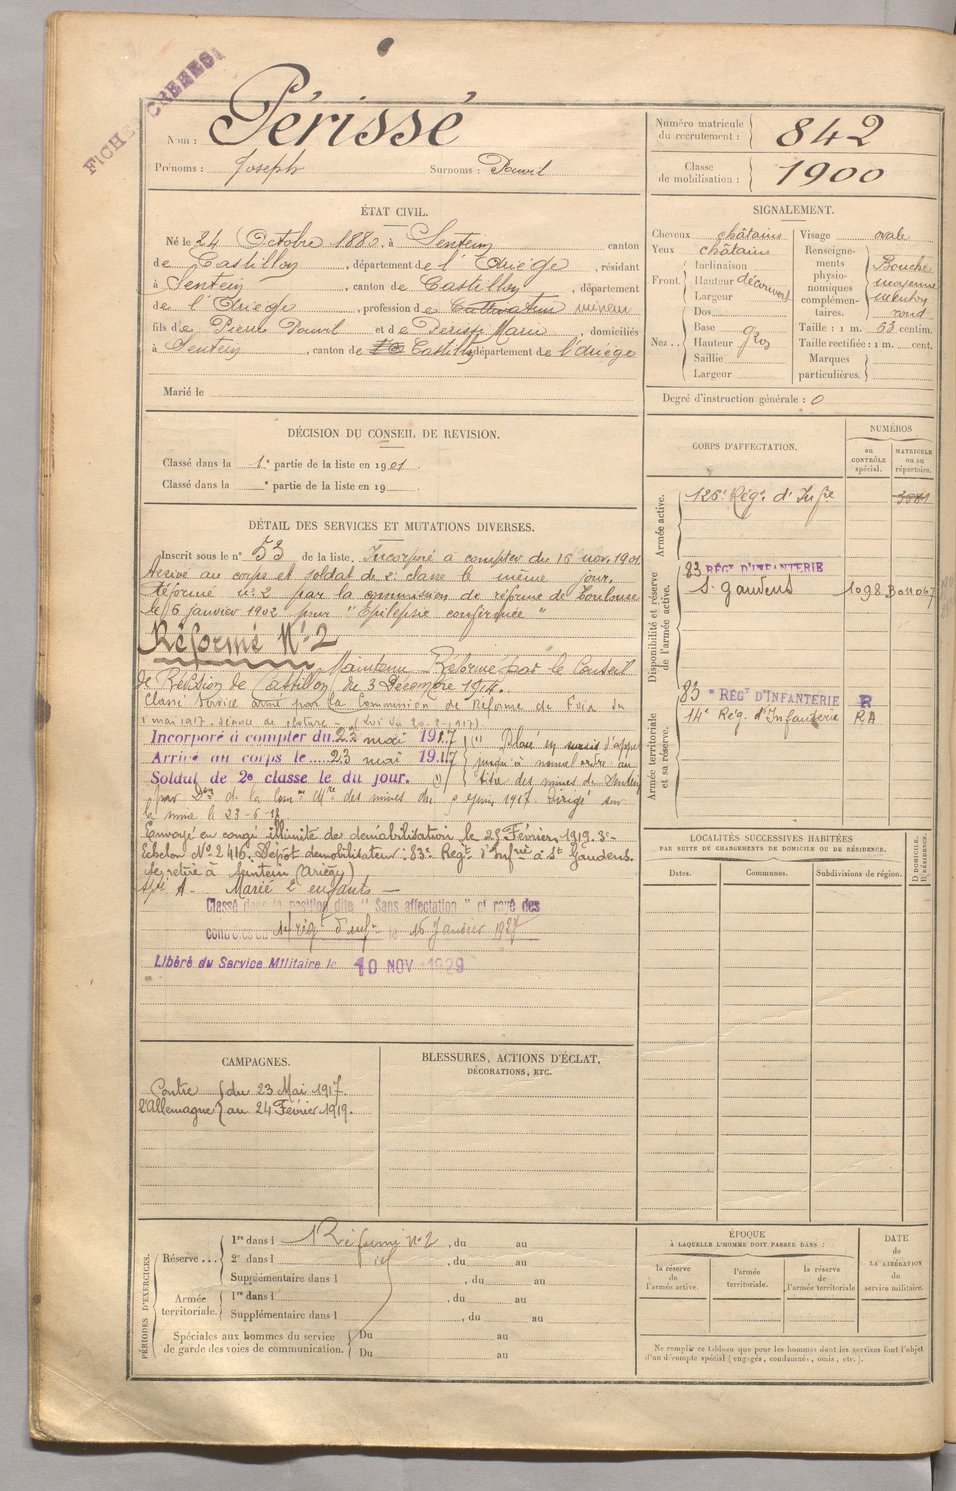 FICHES CRÉÉES
Nom : Périssé
Prénoms : Joseph Surnoms : Douvil
Numéro matricule du recrutement : 842
Classe de mobilisation : 1900
ÉTAT CIVIL.
Né le 24 Octobre 1880, à Sentein, canton
de Castillon, département de l'Ariège, résidant
à Sentein, canton de Castillon, département
de l'Ariège, profession de Cultivateur mineur
fils de Pierre Douvil et de Périssé Marie, domiciliés
à Sentein, canton de Castillon, département de l'Ariège
Marié le
SIGNALEMENT.
Cheveux châtains
Yeux châtains
Front. Inclinaison
Hauteur découvert
Largeur
Nez.. Dos
Base
Hauteur gros
Saillie
Largeur
Visage ovale
Renseignements physionomiques complémentaires. Bouche moyenne menton rond
Taille : 1 m. 63 centim.
Taille rectifiée : 1 m. cent.
Marques particulières.
Degré d'instruction générale : 0
DÉCISION DU CONSEIL DE REVISION.
Classé dans la 1e partie de la liste en 1901.
Classé dans la e partie de la liste en 19
DÉTAIL DES SERVICES ET MUTATIONS DIVERSES.
Inscrit sous le n° 53 de la liste. Incorporé à compter du 16 nov. 1901.
Arrivé au corps et soldat de 2e classe le même jour.
Réformé n° 2 par la commission de réforme de Toulouse
le 6 janvier 1902 pour "Epilepsie confirmée"
Réformé N° 2
Maintenu Réformé par le Conseil
de Révision de Castillon du 3 Décembre 1914.
Classé service armé par la Commission de Réforme de Foix du
1 mai 1917. séance de cloture - (Loi du 20-2-1917)
Incorporé à compter du 23 mai 1917 (1) Placé en sursis d'appel
Arrivé au corps le 23 mai 1917 jusqu'à nouvel ordre au
Soldat de 2e classe le du jour. (1) titre des mines de Sentein
par Don de la Comon Mre des mines du juin 1917. Dirigé sur
la mine le 23-6-17
Envoyé en congé illimité de démobilisation le 25 Février 1919. 3e
Echelon N° 2410. Dépôt démobilisateur : 83e Regt d'Infrie à St Gaudens.
Se retire à Sentein (Ariège)
Marié 2 enfants —
Classé dans la position dite "Sans affectation" et rayé des
contrôles du 14 régt d'infie le 15 Janvier 1927
Libéré du Service Militaire le 10 NOV 1929
CORPS D'AFFECTATION.
NUMÉROS
au CONTRÔLE spécial.
MATRICULE ou au répertoire.
Armée active.
126e Régt d'Infie 3081
Disponibilité et réserve de l'armée active.
83 RÉGt D'INFANTERIE
St Gaudens 1098
Armée territoriale et sa réserve.
83 e RÉGt D'INFANTERIE R
14e Rég. d'Infanterie RA
LOCALITÉS SUCCESSIVES HABITÉES
PAR SUITE DE CHANGEMENTS DE DOMICILE OU DE RÉSIDENCE.
D. DOMICILE. R. RÉSIDENCE.
Dates. Communes. Subdivisions de région.
CAMPAGNES.
Contre l'Allemagne du 23 Mai 1917.
au 24 Février 1919.
BLESSURES, ACTIONS D'ÉCLAT,
DÉCORATIONS, ETC.
PÉRIODES D'EXERCICES.
Réserve ... 1re dans l Réformé n° 2, du au
2e dans l , du au
Supplémentaire dans l , du au
Armée territoriale. 1re dans l , du au
Supplémentaire dans l , du au
Spéciales aux hommes du service de garde des voies de communication. Du au
Du au
ÉPOQUE
À LAQUELLE L'HOMME DOIT PASSER DANS :
la réserve de l'armée active.
l'armée territoriale.
la réserve de l'armée territoriale
DATE
de
LA LIBÉRATION
du
service militaire.
Ne remplir ce tableau que pour les hommes dont les services font l'objet
d'un décompte spécial (engagés, condamnés, omis, etc.).